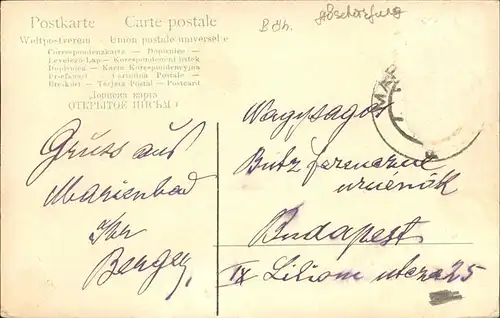 Postkarte Carte postale
Weltpostverein – Union postale universelle
Correspondenzkarte – Dopisnice –
Levelező-Lap – Korrespondent listek
Dopisnica – Karta Korrespondencyjna
Briefkaart – Cartolina Postale –
Brevkort – Tarjeta Postal – Postcard
ОТКРЫТОЕ ПИСЬМО
Gruss aus
Marienbad
Ihr
Berger
MAR
Nagysagos
Butz Ferenczné
urnénők
Budapest
IX Liliom utcza 25